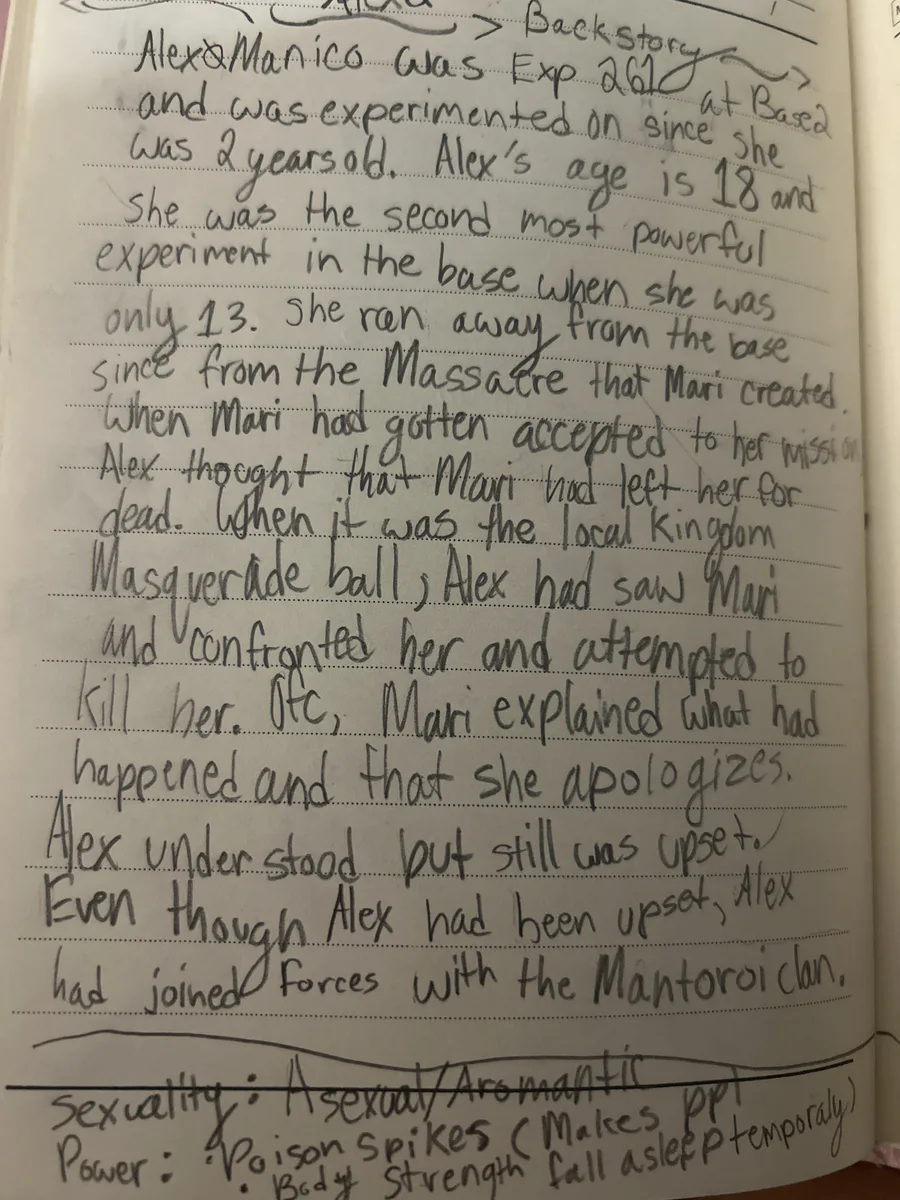 > Backstory >
Alexa Manico was Exp 261 at Base2
and was experimented on since she
was 2 years old. Alex's age is 18 and
she was the second most powerful
experiment in the base when she was
only 13. She ran away from the base
since from the Massacre that Mari created.
When Mari had gotten accepted to her mission
Alex thought that Mari had left her for
dead. When it was the local kingdom
Masquerade ball, Alex had saw Mari
and confronted her and attempted to
kill her. Ofc, Mari explained what had
happened and that she apologizes.
Alex understood but still was upset.
Even though Alex had been upset, Alex
had joined forces with the Mantoroi clan.
Sexuality: Asexual/Aromantic
Power: • Poison Spikes (Makes ppl
fall asleep temporaly)
• Body Strength